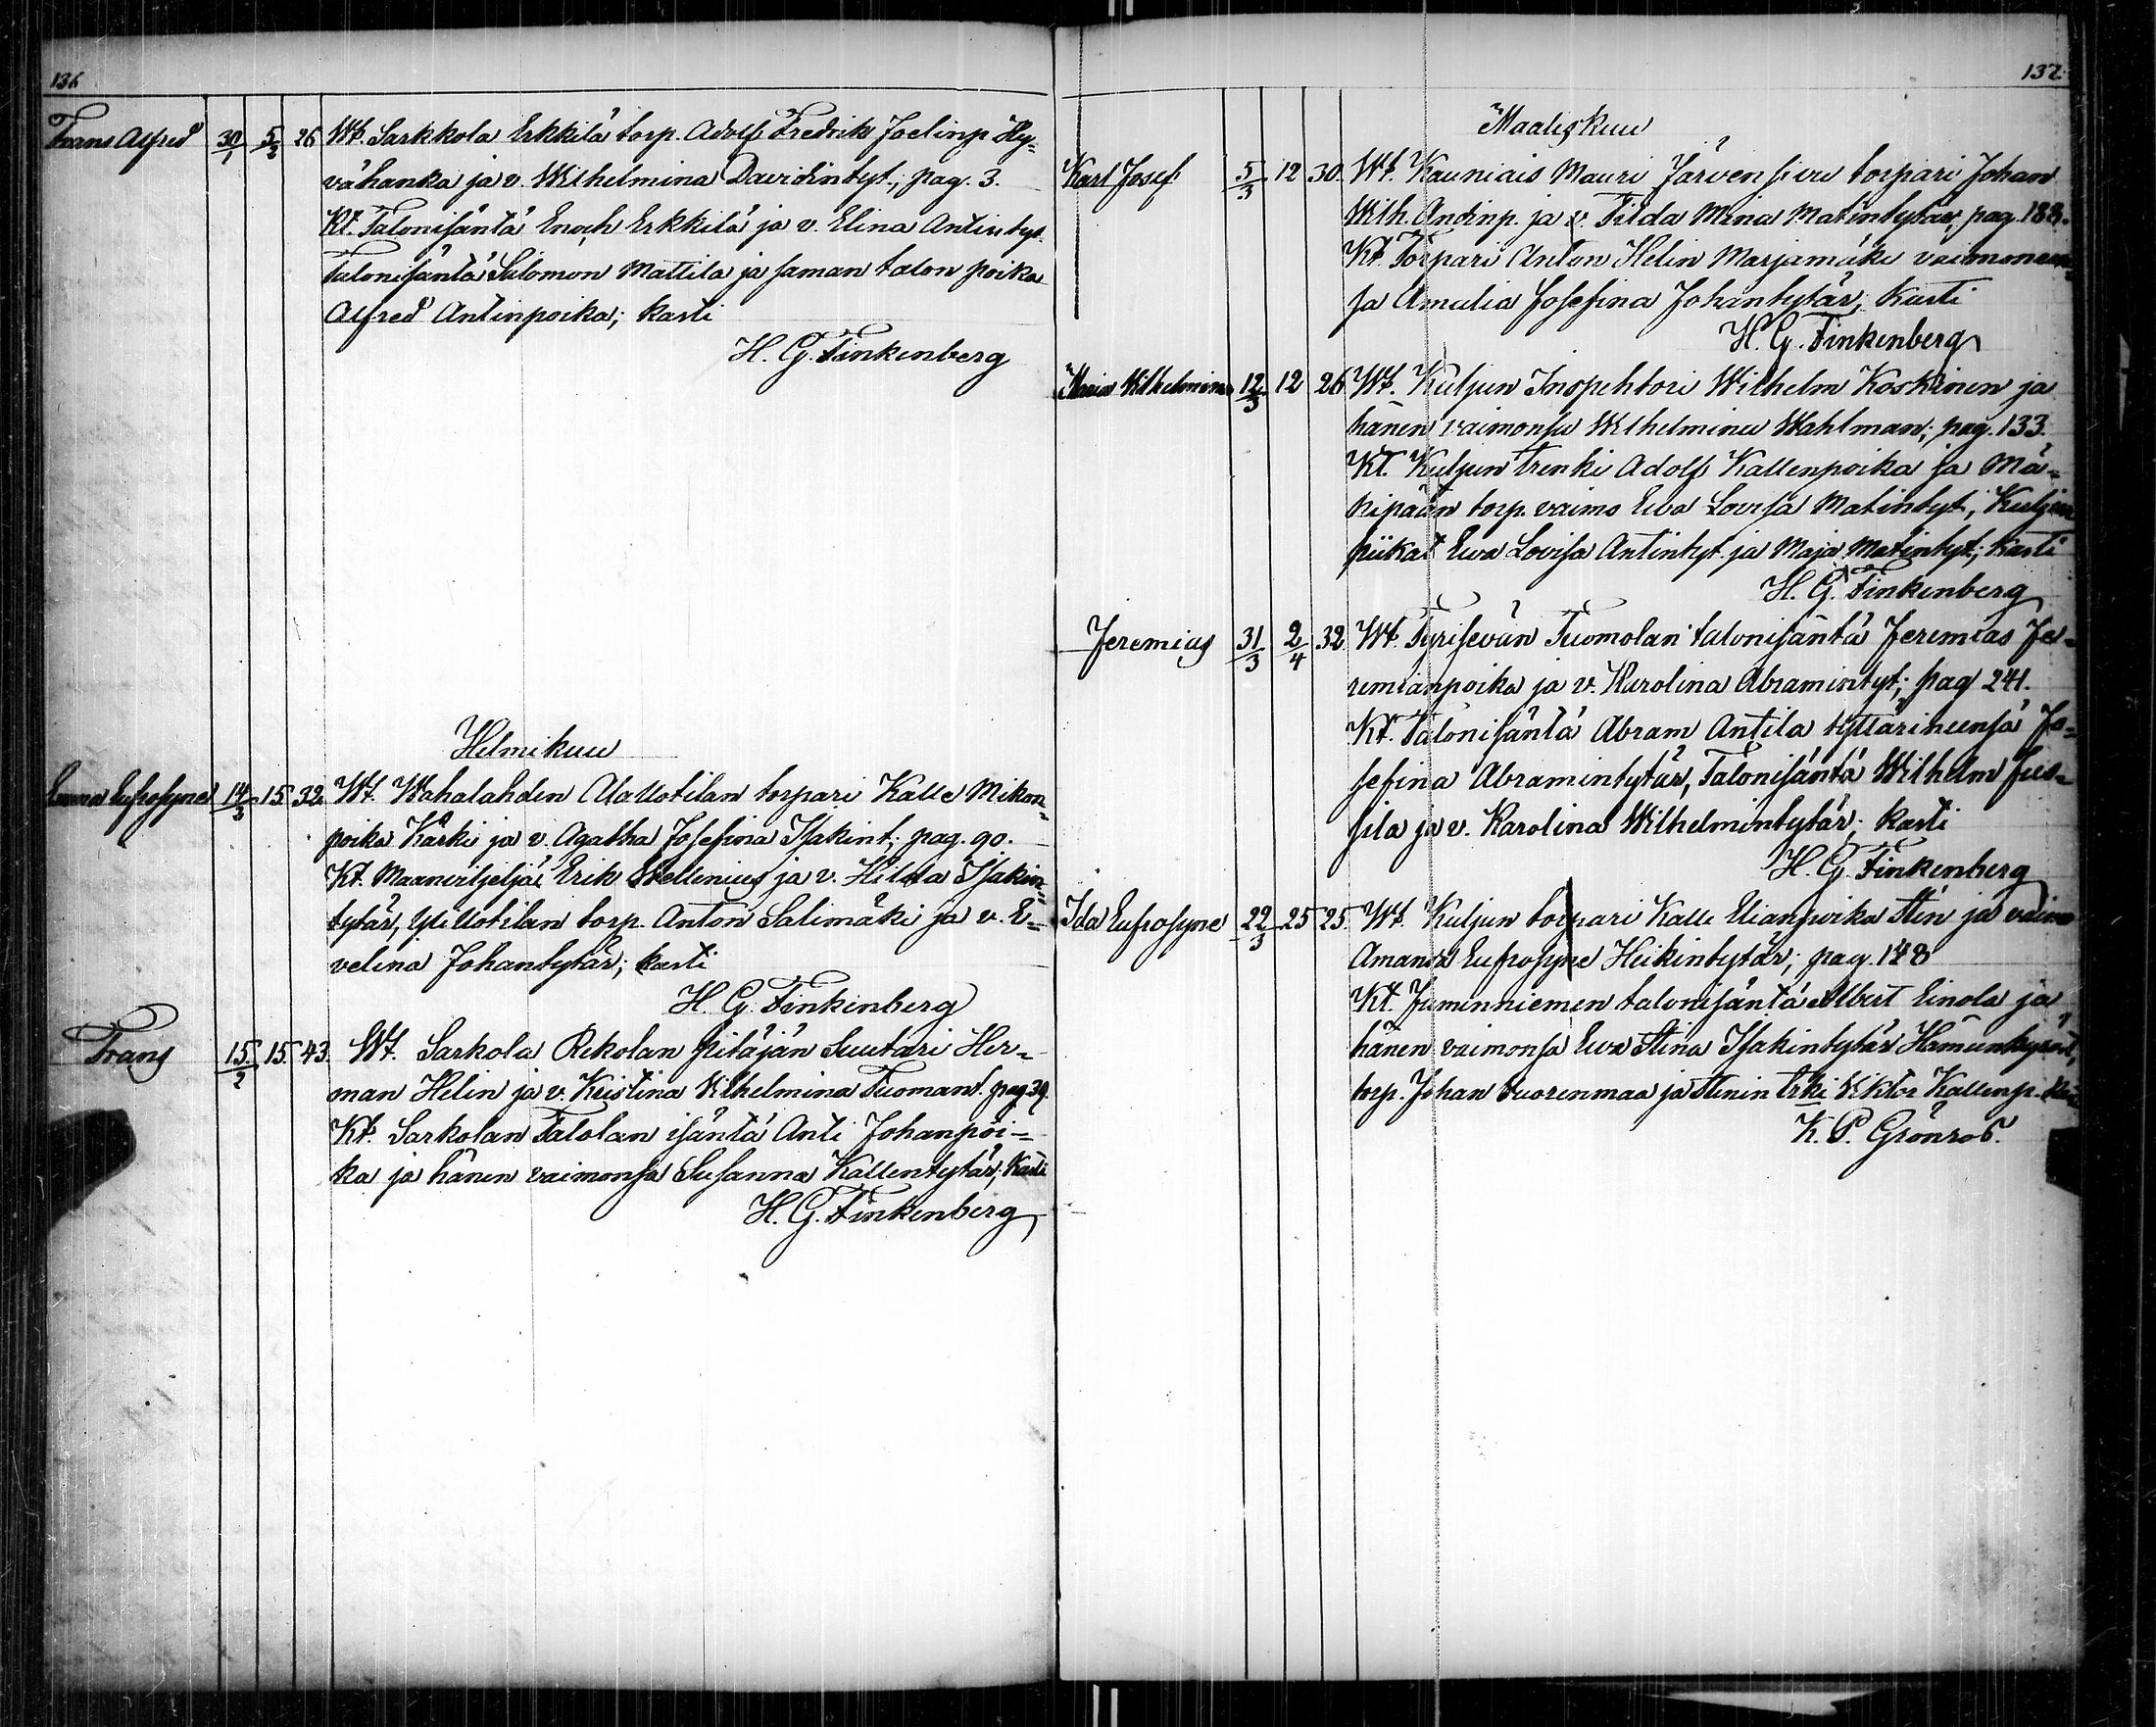 136
Frans Alfred 30/1 5/2 26 Wt. Sarkkola Erkkilä torp. Adolf Fredrik Joelinp Hy-
vähanka ja v. Wilhelmina Davidintyt.; pag. 3.
Kt. Talonisäntä Enoch Erkkilä ja v. Elina Antintyt.
Talonisäntä Salomon Mattila ja saman talon poika
Alfred Antinpoika; kasti
H. G. Finkenberg
Helmikuu
Emma Eufrosyne 14/2 15 32. Wt. Wahalahden AlaUotilan torpari Kalle Mikon-
poika Kärki ja v. Agatha Josefina Isakint; pag. 90.
Kt. Maanviljeljä Erik Stellenius ja v. Hilda Isakin-
tytär, YliUotilan torp. Anton Salimäki ja v. E-
velina Johantytär; kasti
H. G. Finkenberg
Frans 15/2 15. 43. Wt. Sarkola Rekolan Pitäjän Suutari Her-
man Helin ja v. Kristiina Wilhelmina Tuomant. pag. 39.
Kt. Sarkolan Talolan isäntä Anti Johanpoi-
ka ja hänen vaimonsa Susanna Kallentytär; Kasti
H. G. Finkenberg
137.
Maaliskuu
Karl Josef 5/3 12 30. Wt. Kauniais Mauri Järvensivu torpari Johan
Wilh. Andinp. ja v. Tilda Mina Matintytär, pag. 188.
Kt. Torpari Anton Helin Marjamäki vaimoneen
ja Amalia Josefina Johantytär; Kasti
H. G. Finkenberg
Maria Wilhelmina 12/3 12 26 Wt. Kuljun Inspehtori Wilhelm Koskinen ja
hänen vaimonsa Wilhelmina Wahlman; pag. 133.
Kt. Kuljun trenki Adolf Kallenpoika ja Mä-
kipään torp. vaimo Eva Lovisa Matintyt, Kuljun
piikat Ewa Lovisa Antintyt. ja Maja Matintyt; kasti
H. G. Finkenberg
Jeremias 31/3 2/4 32. Wt. Tyrisevän Tuomolan talonisäntä Jeremias Je-
remianpoika ja v. Karolina Abramintyt; pag 241.
Kt. Talonisäntä Abram Antila tyttärineensä Jo-
sefina Abramintytär, Talonisäntä Wilhelm Jus-
sila ja v. Karolina Wilhelmintytär; kasti
H. G. Finkenberg
Ida Eufrosyne 22/3 25 25. Wt. Kuljun torpari Kalle Elianpoika Sten ja vaimo
Amanda Eufrosyne Heikintytär; pag. 148
Kt. Juminniemen talonisäntä Albert Einola ja
hänen vaimonsa Ewa Stina Isakintytär Hämeenkyröst,
torp. Johan Vuorenmaa ja Stenin trki Viktor Kallenp.
K. P. Grönroos.